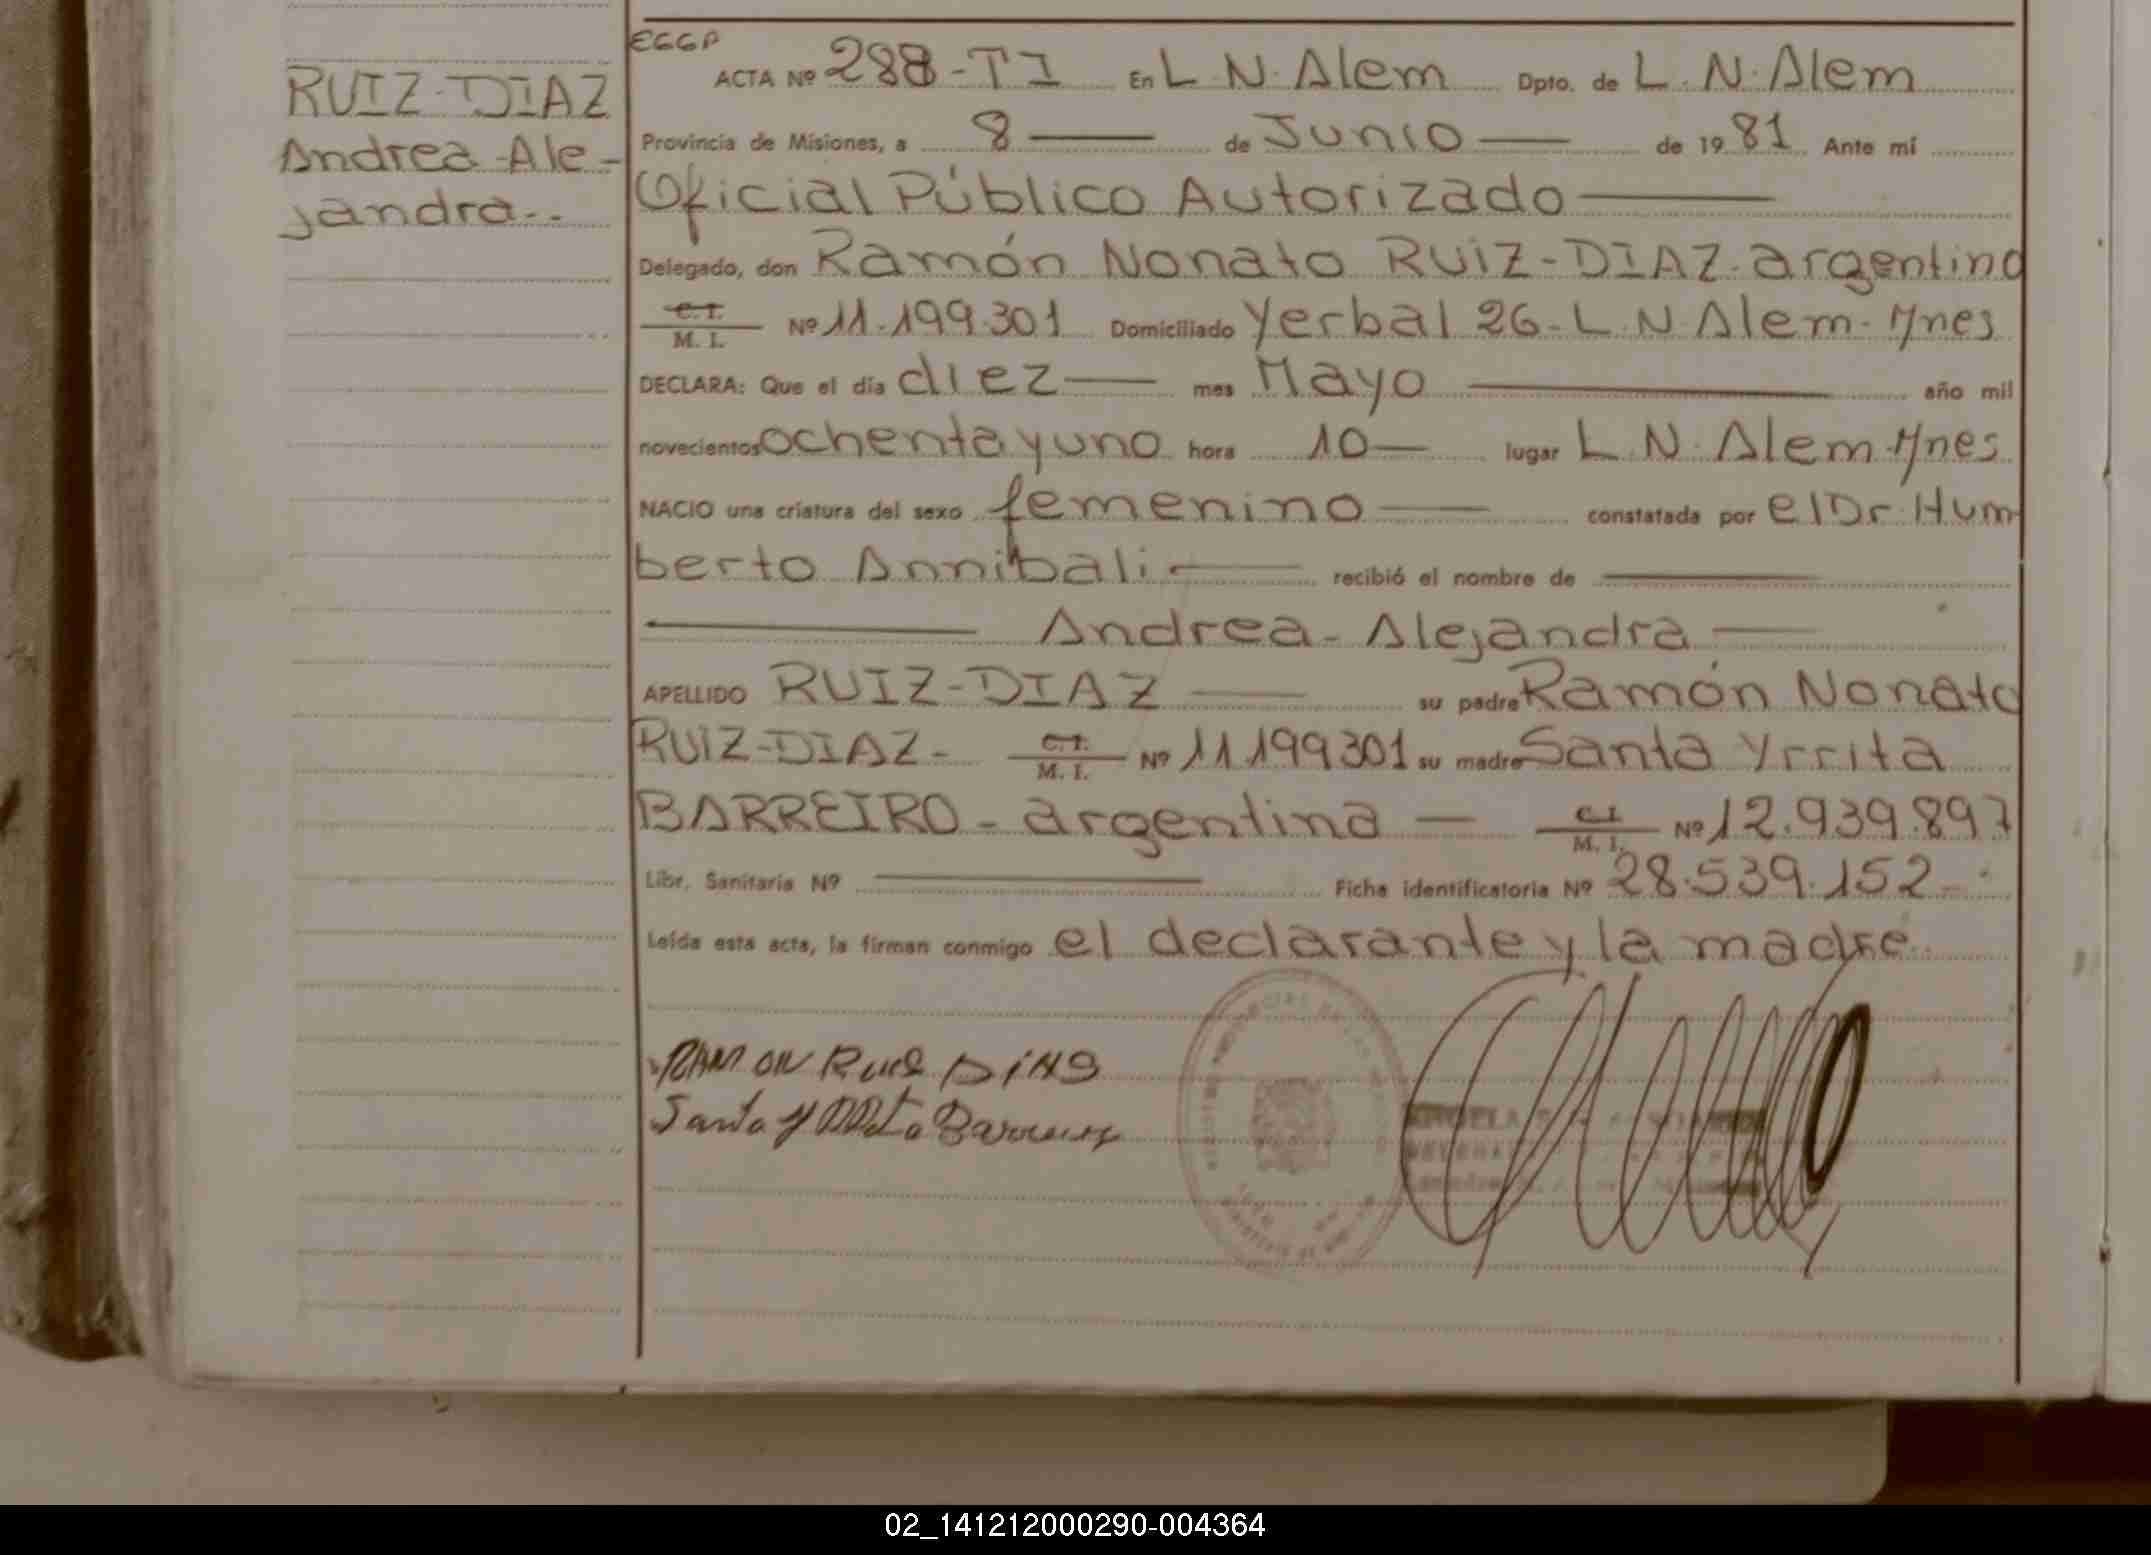 RUIZ-DIAZ
Andrea-Ale-
jandra..
ACTA Nº 288-TI En L.N.Alem Dpto. de L.N.Alem
Provincia de Misiones, a 8 de Junio de 1981 Ante mí
Oficial Público Autorizado
Delegado, don Ramón Nonato RUIZ-DIAZ-argentino
C.I. M. I. Nº 11.199.301 Domiciliado Yerbal 26-L.N.Alem-Mnes
DECLARA: Que el día diez mes Mayo año mil
novecientos ochenta y uno hora 10 lugar L.N.Alem Mnes
NACIO una criatura del sexo femenino constatada por el Dr. Hum
berto Annibali recibió el nombre de
Andrea-Alejandra
APELLIDO RUIZ-DIAZ su padre Ramón Nonato
RUIZ-DIAZ- C.I. M. I. Nº 11199301 su madre Santa Yrrita
BARREIRO-argentina C.I. M. I. Nº 12.939.897
Libr. Sanitaria Nº Ficha identificatoria Nº 28.539.152-
Leída esta acta, la firman conmigo el declarante y la madre.
RAMON Ruis DiAS
Santa
02_141212000290-004364